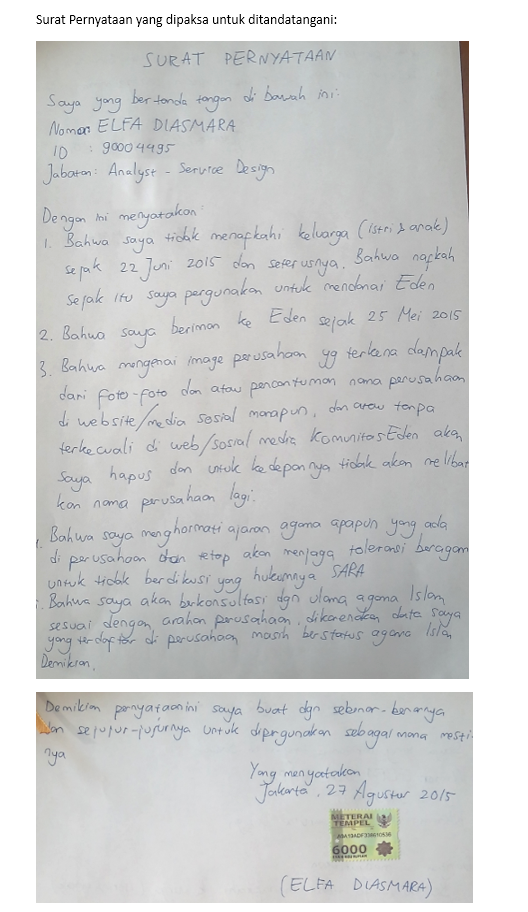 Surat Pernyataan yang dipaksa untuk ditandatangani:
SURAT PERNYATAAN
Saya yang bertanda tangan di bawah ini:
Nama: ELFA DIASMARA
ID : 90004495
Jabatan: Analyst - Service Design
Dengan ini menyatakan:
1. Bahwa saya tidak menafkahi keluarga (istri & anak)
sejak 22 Juni 2015 dan seterusnya. Bahwa nafkah
sejak itu saya pergunakan untuk mendanai Eden
2. Bahwa saya beriman ke Eden sejak 25 Mei 2015
3. Bahwa mengenai image perusahaan yg terkena dampak
dari foto-foto dan atau pencantuman nama perusahaan
di website/media sosial manapun, dan atau tanpa
terkecuali di web/sosial media Komunitas Eden akan
saya hapus dan untuk kedepannya tidak akan melibat
kan nama perusahaan lagi.
Bahwa saya menghormati ajaran agama apapun yang ada
di perusahaan dan tetap akan menjaga toleransi beragam
untuk tidak berdikusi yang hukumnya SARA
Bahwa saya akan berkonsultasi dgn ulama agama Islam
sesuai dengan arahan perusahaan, dikarenakan data saya
yang terdaftar di perusahaan masih berstatus agama Islam
Demikian,
Demikian pernyataan ini saya buat dgn sebenar-benarnya
dan sejujur-jujurnya untuk dipergunakan sebagaimana mesti
nya
Yang menyatakan
Jakarta, 27 Agustus 2015
METERAI
TEMPEL
6000
(ELFA DIASMARA)